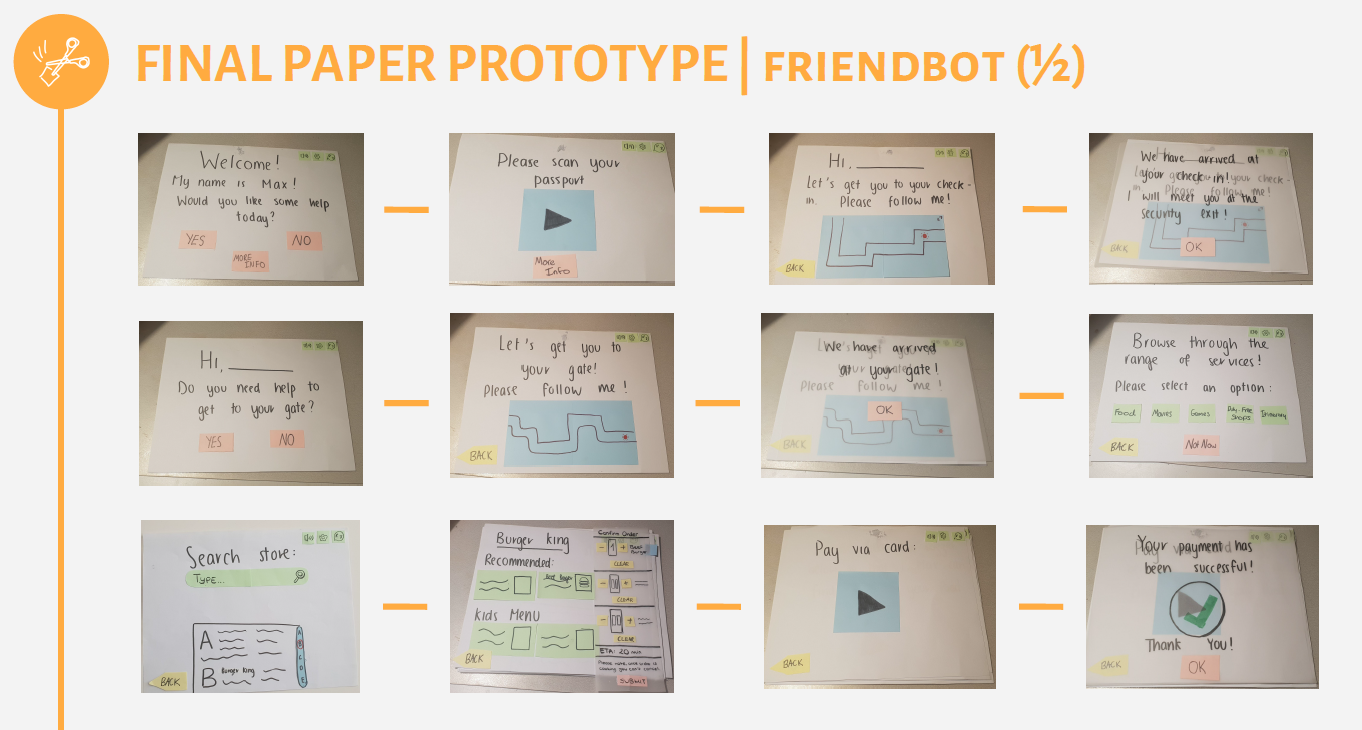 FINAL PAPER PROTOTYPE | FRIENDBOT (½)
Welcome!
My name is Max!
Would you like some help
today?
YES
NO
MORE
INFO
Please scan your
passport
More
Info
Hi, ________
Let's get you to your check-
in. Please follow me!
BACK
We have arrived at
your check in!
I will meet you at the
security exit!
BACK
OK
Hi, ________
Do you need help to
get to your gate?
YES
NO
Let's get you to
your gate!
Please follow me!
BACK
We have arrived
at your gate!
Please follow me!
OK
BACK
Browse through the
range of services!
Please select an option:
Food
Movies
Games
Duty-Free
Shops
Itinerary
BACK
Not Now
Search store:
TYPE...
A
B
Burger King
A
B
C
D
E
BACK
Burger king
Recommended:
Kids Menu
BACK
Confirm Order
- 1 +
Beef
Burger
CLEAR
CLEAR
CLEAR
ETA: 20 min
SUBMIT
Pay via card:
BACK
Your payment has
been successful!
Thank You!
BACK
OK